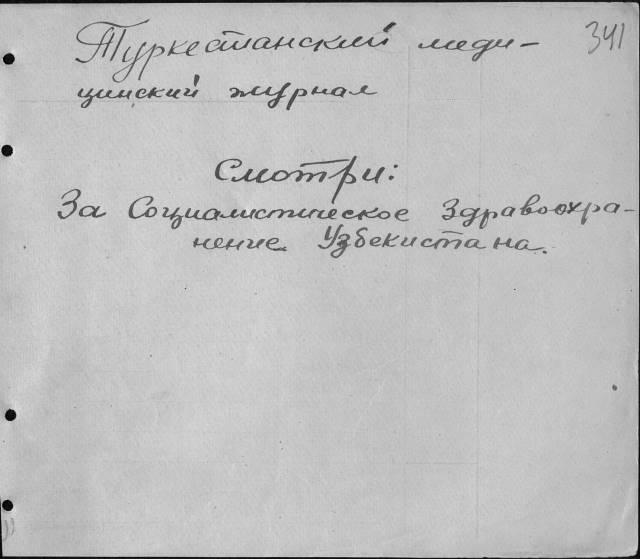 341
Туркестанский меди-
цинский журнал
Смотри:
За Социалистическое Здравоохра-
нение Узбекистана.